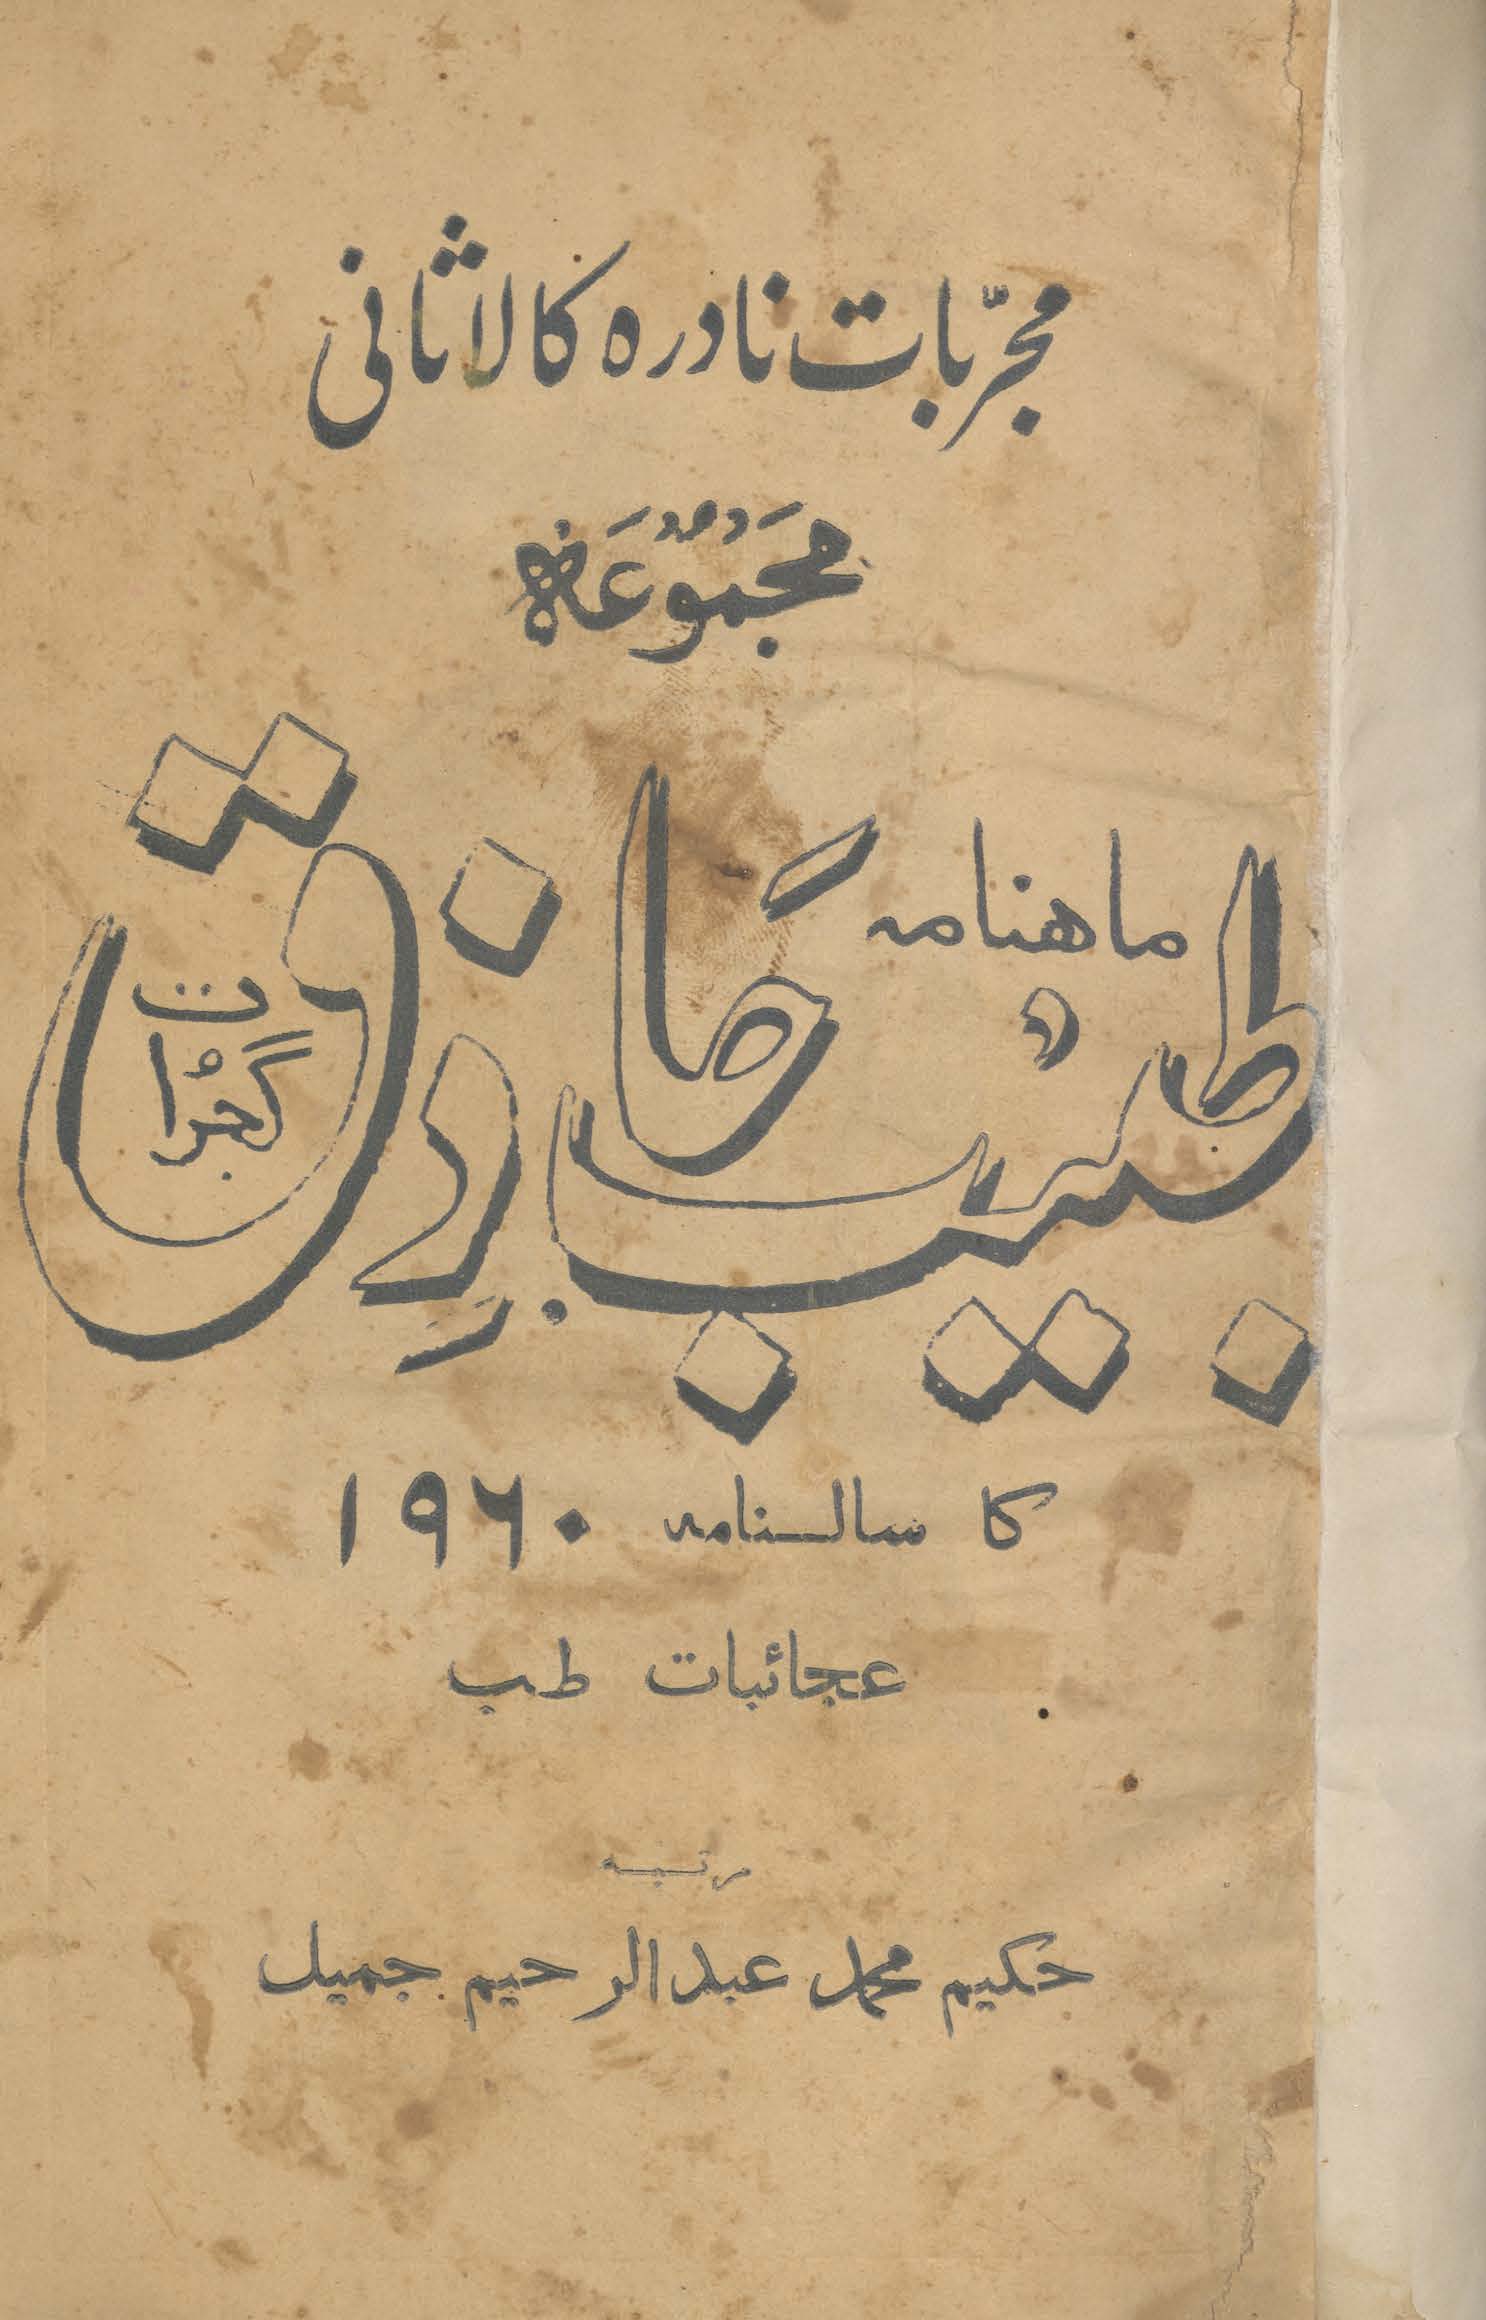 مجرّبات نادرہ کا لاثانی
مَجمُوعَہ
ماھنامہ
طبیب حاذِق
گجرات
کا سالنامہ ۱۹۶۰
عجائبات طب
مرتبہ
حکیم محمد عبدالرحیم جمیل